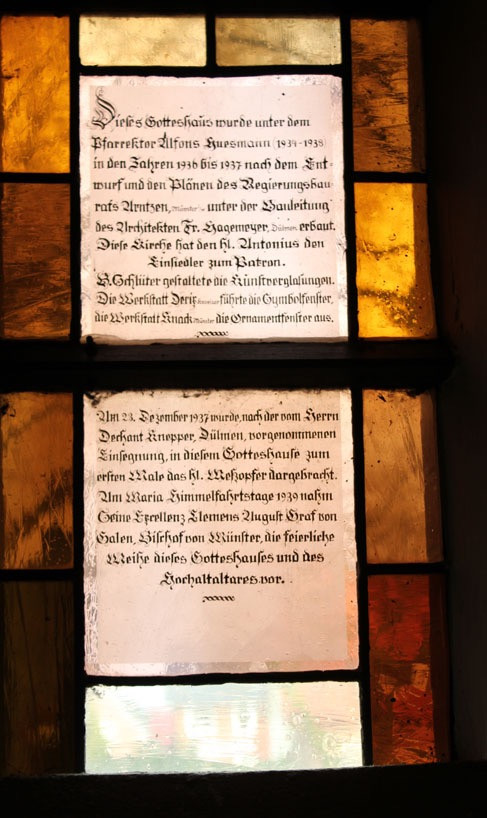 Dieses Gotteshaus wurde unter dem
Pfarrektor Alfons Huesmann (1934-1938)
in den Jahren 1936 bis 1937 nach dem Ent-
wurf und den Plänen des Regierungsbau-
rats Arntzen, Münster unter der Bauleitung
des Architekten Fr. Hagemeyer, Dülmen erbaut.
Diese Kirche hat den hl. Antonius den
Einsiedler zum Patron.
B. Schlüter gestaltete die Kunstverglasungen.
Die Werkstatt Derix führte die Symbolfenster,
die Werkstatt Knack Münster die Ornamentfenster aus.
Am 23. Dezember 1937 wurde, nach der vom Herrn
Dechant Knepper, Dülmen, vorgenommenen
Einsegnung, in diesem Gotteshause zum
ersten Male das hl. Meßopfer dargebracht.
Am Maria Himmelfahrtstage 1939 nahm
Seine Exzellenz Clemens August Graf von
Galen, Bischof von Münster, die feierliche
Weihe dieses Gotteshauses und des
Hochaltaltares vor.